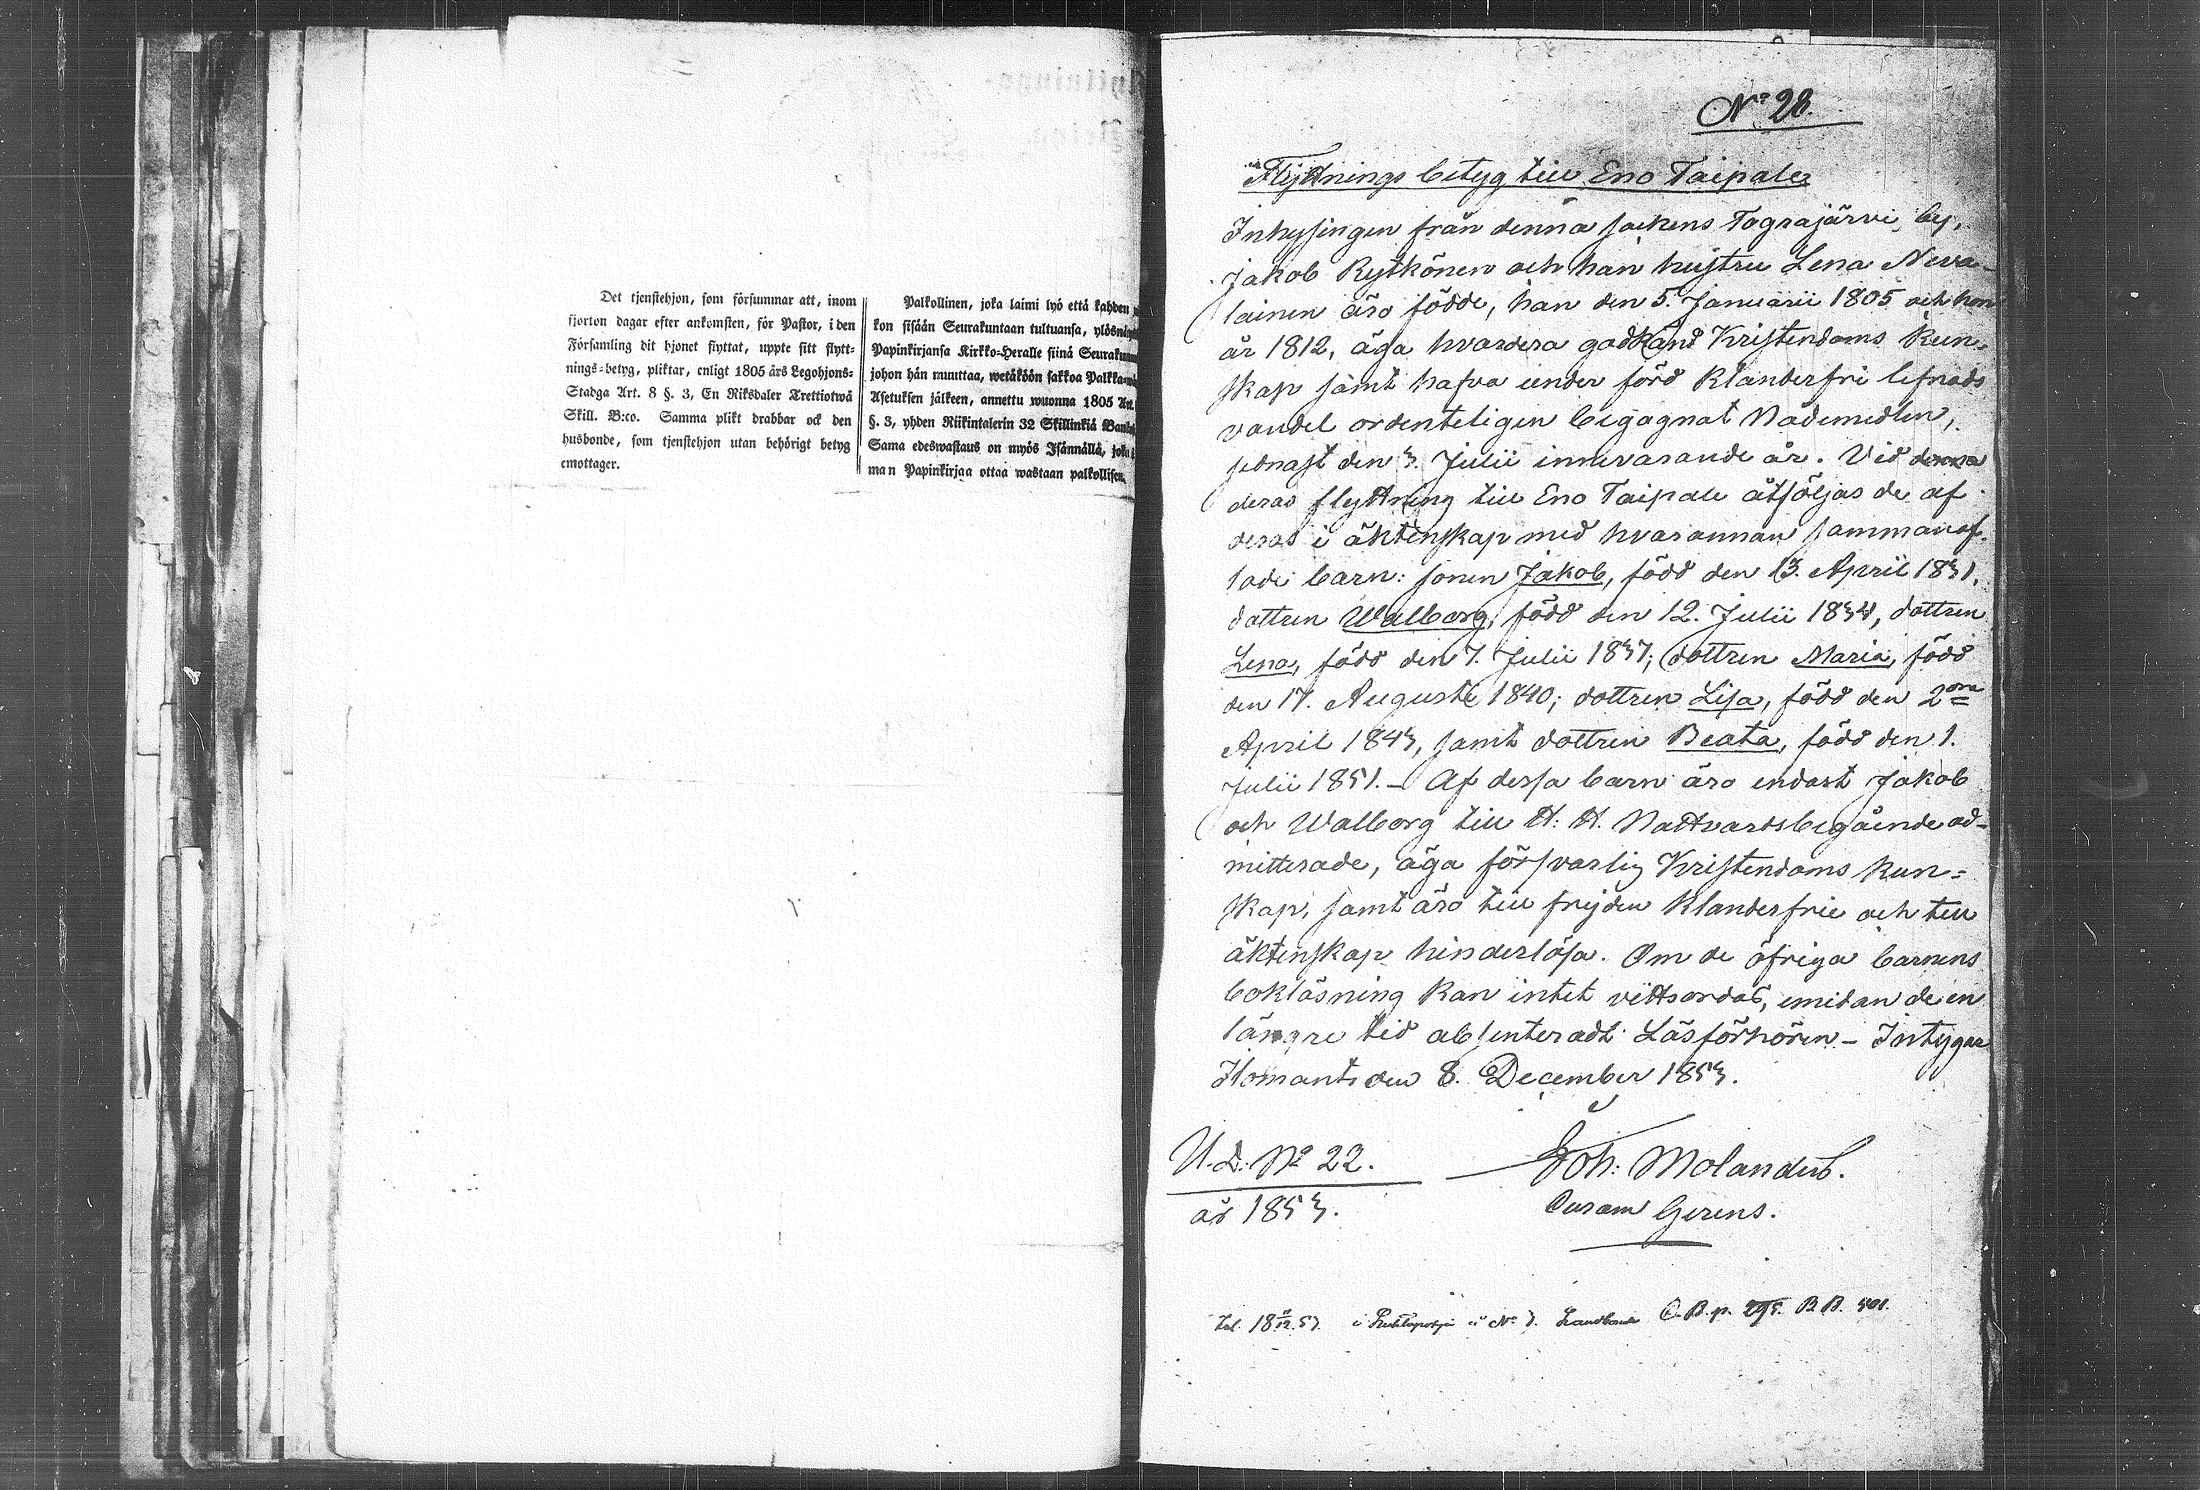 Det tjenstehjon, som försummar att, inom
fjorton dagar efter ankomsten, för Pastor, i den
Församling dit hjonet flyttat, uppte sitt flytt-
nings-betyg, pliktar, enligt 1805 års Legohjons-
Stadga Art. 8 §. 3, En Riksdaler Trettiotwå
Skill. B:co. Samma plikt drabbar ock den
husbonde, som tjenstehjon utan behörigt betyg
emottager.
Palkollinen, joka laimi lyö että kahden
kon sisään Seurakuntaan tultuansa, ylösnä
Papinkirjansa Kirkko-Heralle siinä Seuraku
johon hän muuttaa, wetäköön sakkoa Palkka-
Asetuksen jälkeen, annettu wuonna 1805 Art.
§. 3, yhden Riikintalerin 32 Skillinkiä Banko
Sama edeswastaus on myös Isännällä, joka
man Papinkirjaa ottaa wastaan palkollisen.
No 28.
Flyttnings betyg till Eno Taipale
Inhysingen från denna sockens Tograjärvi by,
Jakob Rytkönen och han hustru Lena Neva-
lainen äro födde, han den 5. Januarii 1805 och hon
år 1812, äga hvardera godkänd Kristendoms kun-
skap samt hafva under förd klanderfri lefnads
vandel ordenteligen begagnat Nådemedlen,
sednast den 3. Julii innevarande år. Vid denna
deras flyttning till Eno Taipale åtföljas de af
deras i äktenskap med hvarannan sammanaf-
lade barn: sonen Jakob, född den 13. April 1831,
dottren Walborg, född den 12. Julii 1834, dottren
Lena, född den 7. Julii 1837; dottren Maria, född
den 17. Augusti 1840; dottren Lisa, född den 2dra
April 1843, samt dottren Beata, född den 1.
Julii 1851. – Af dessa barn äro endast Jakob
och Walborg till H. H. Nattvardsbegående ad-
mitterade, äga försvarlig Kristendoms kun-
skap, samt äro till frejden klanderfrie och till
äktenskap hinderlösa. Om de öfriga barnens
bokläsning kan intet vittsordas, emedan de en
längre tid absenteradt Läsförhören – Intygar
Ilomants den 8. December 1853.
U.d. No 22.
år 1853.
Joh: Molander.
Curam Gerens.
18 12. 53. i No 3. O.B. p. 295. B.B. 501.